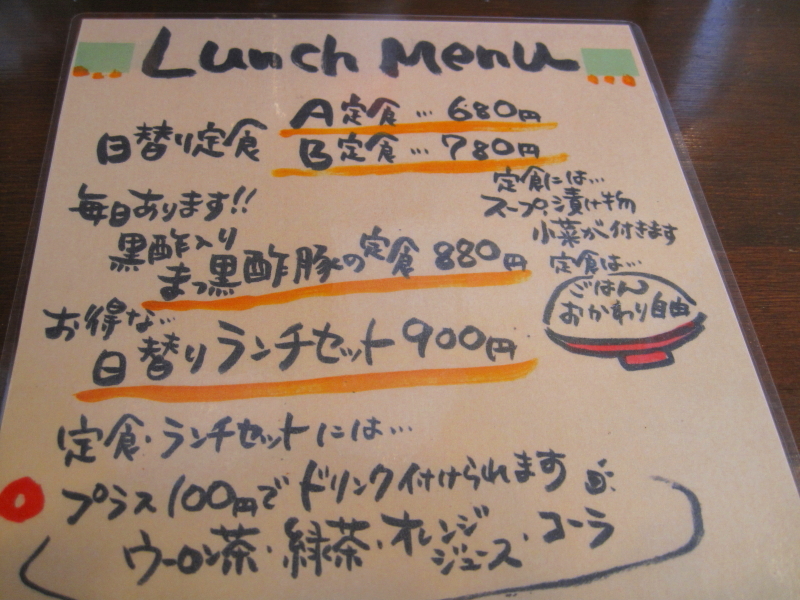 Lunch Menu
日替り定食
A定食…680円
B定食…780円
定食には…
スープ、漬け物
小菜が付きます
毎日あります!!
黒酢入り
まっ黒酢豚の定食 880円
定食は…
ごはん
おかわり自由
お得な…
日替りランチセット900円
定食・ランチセットには…
プラス100円でドリンク付けられます
ウーロン茶・緑茶・オレンジジュース・コーラ